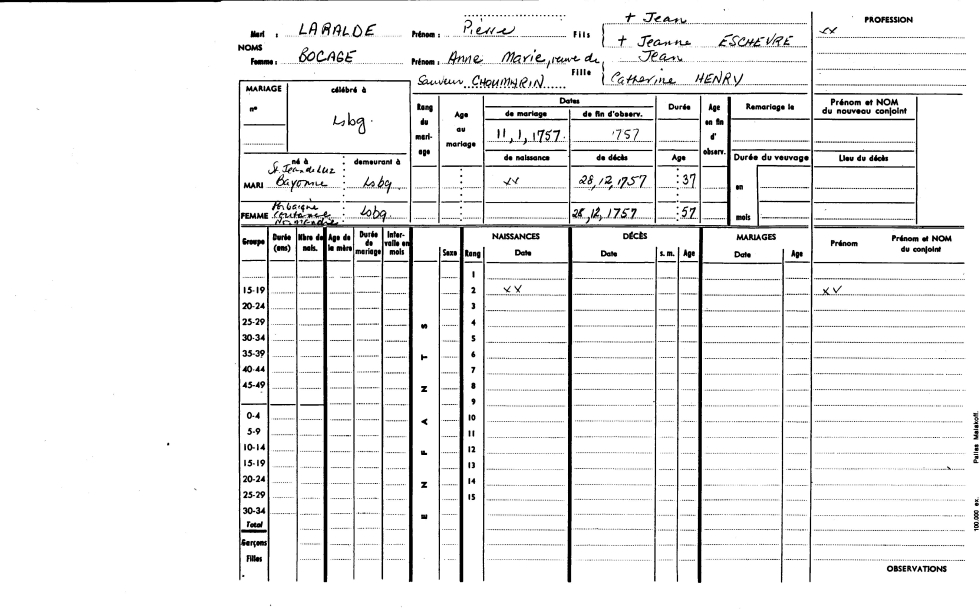 + Jean PROFESSION
Mari : LARALDE Prénom : Pierre Fils xx
NOMS + Jeanne ESCHEVRE
Femme : BOCAGE Prénom : Anne Marie, veuve de Jean
Sauveur CHOUMURIN Fille Catherine HENRY
MARIAGE célébré à
n° Lsbg.
Rang du mariage Age au mariage Dates Durée Age en fin d'observ. Remariage le Prénom et NOM du nouveau conjoint
de mariage de fin d'observ.
11, 1, 1757. 1757
de naissance de décès Age Durée du veuvage Lieu du décès
né à demeurant à
St Jean de Luz
MARI Bayonne Lsbg xx 28, 12, 1757 37 en
FEMME Coutance Normandie Lsbg. 28, 12, 1757 57 mois
Groupe Durée (ans) Nbre de nais. Age de la mère Durée de mariage Inter-valle en mois Sexe Rang NAISSANCES Date DÉCÈS Date s. m. Age MARIAGES Date Age Prénom Prénom et NOM du conjoint
1
15-19 2 xx xx
20-24 3
25-29 S 4
30-34 5
35-39 T 6
40-44 7
45-49 N 8
9
0-4 A 10
5-9 11
10-14 F 12
15-19 13
20-24 N 14
25-29 15
30-34 E
Total
Garçons
Filles
OBSERVATIONS
100.000 ex. Parlies Malakoff.